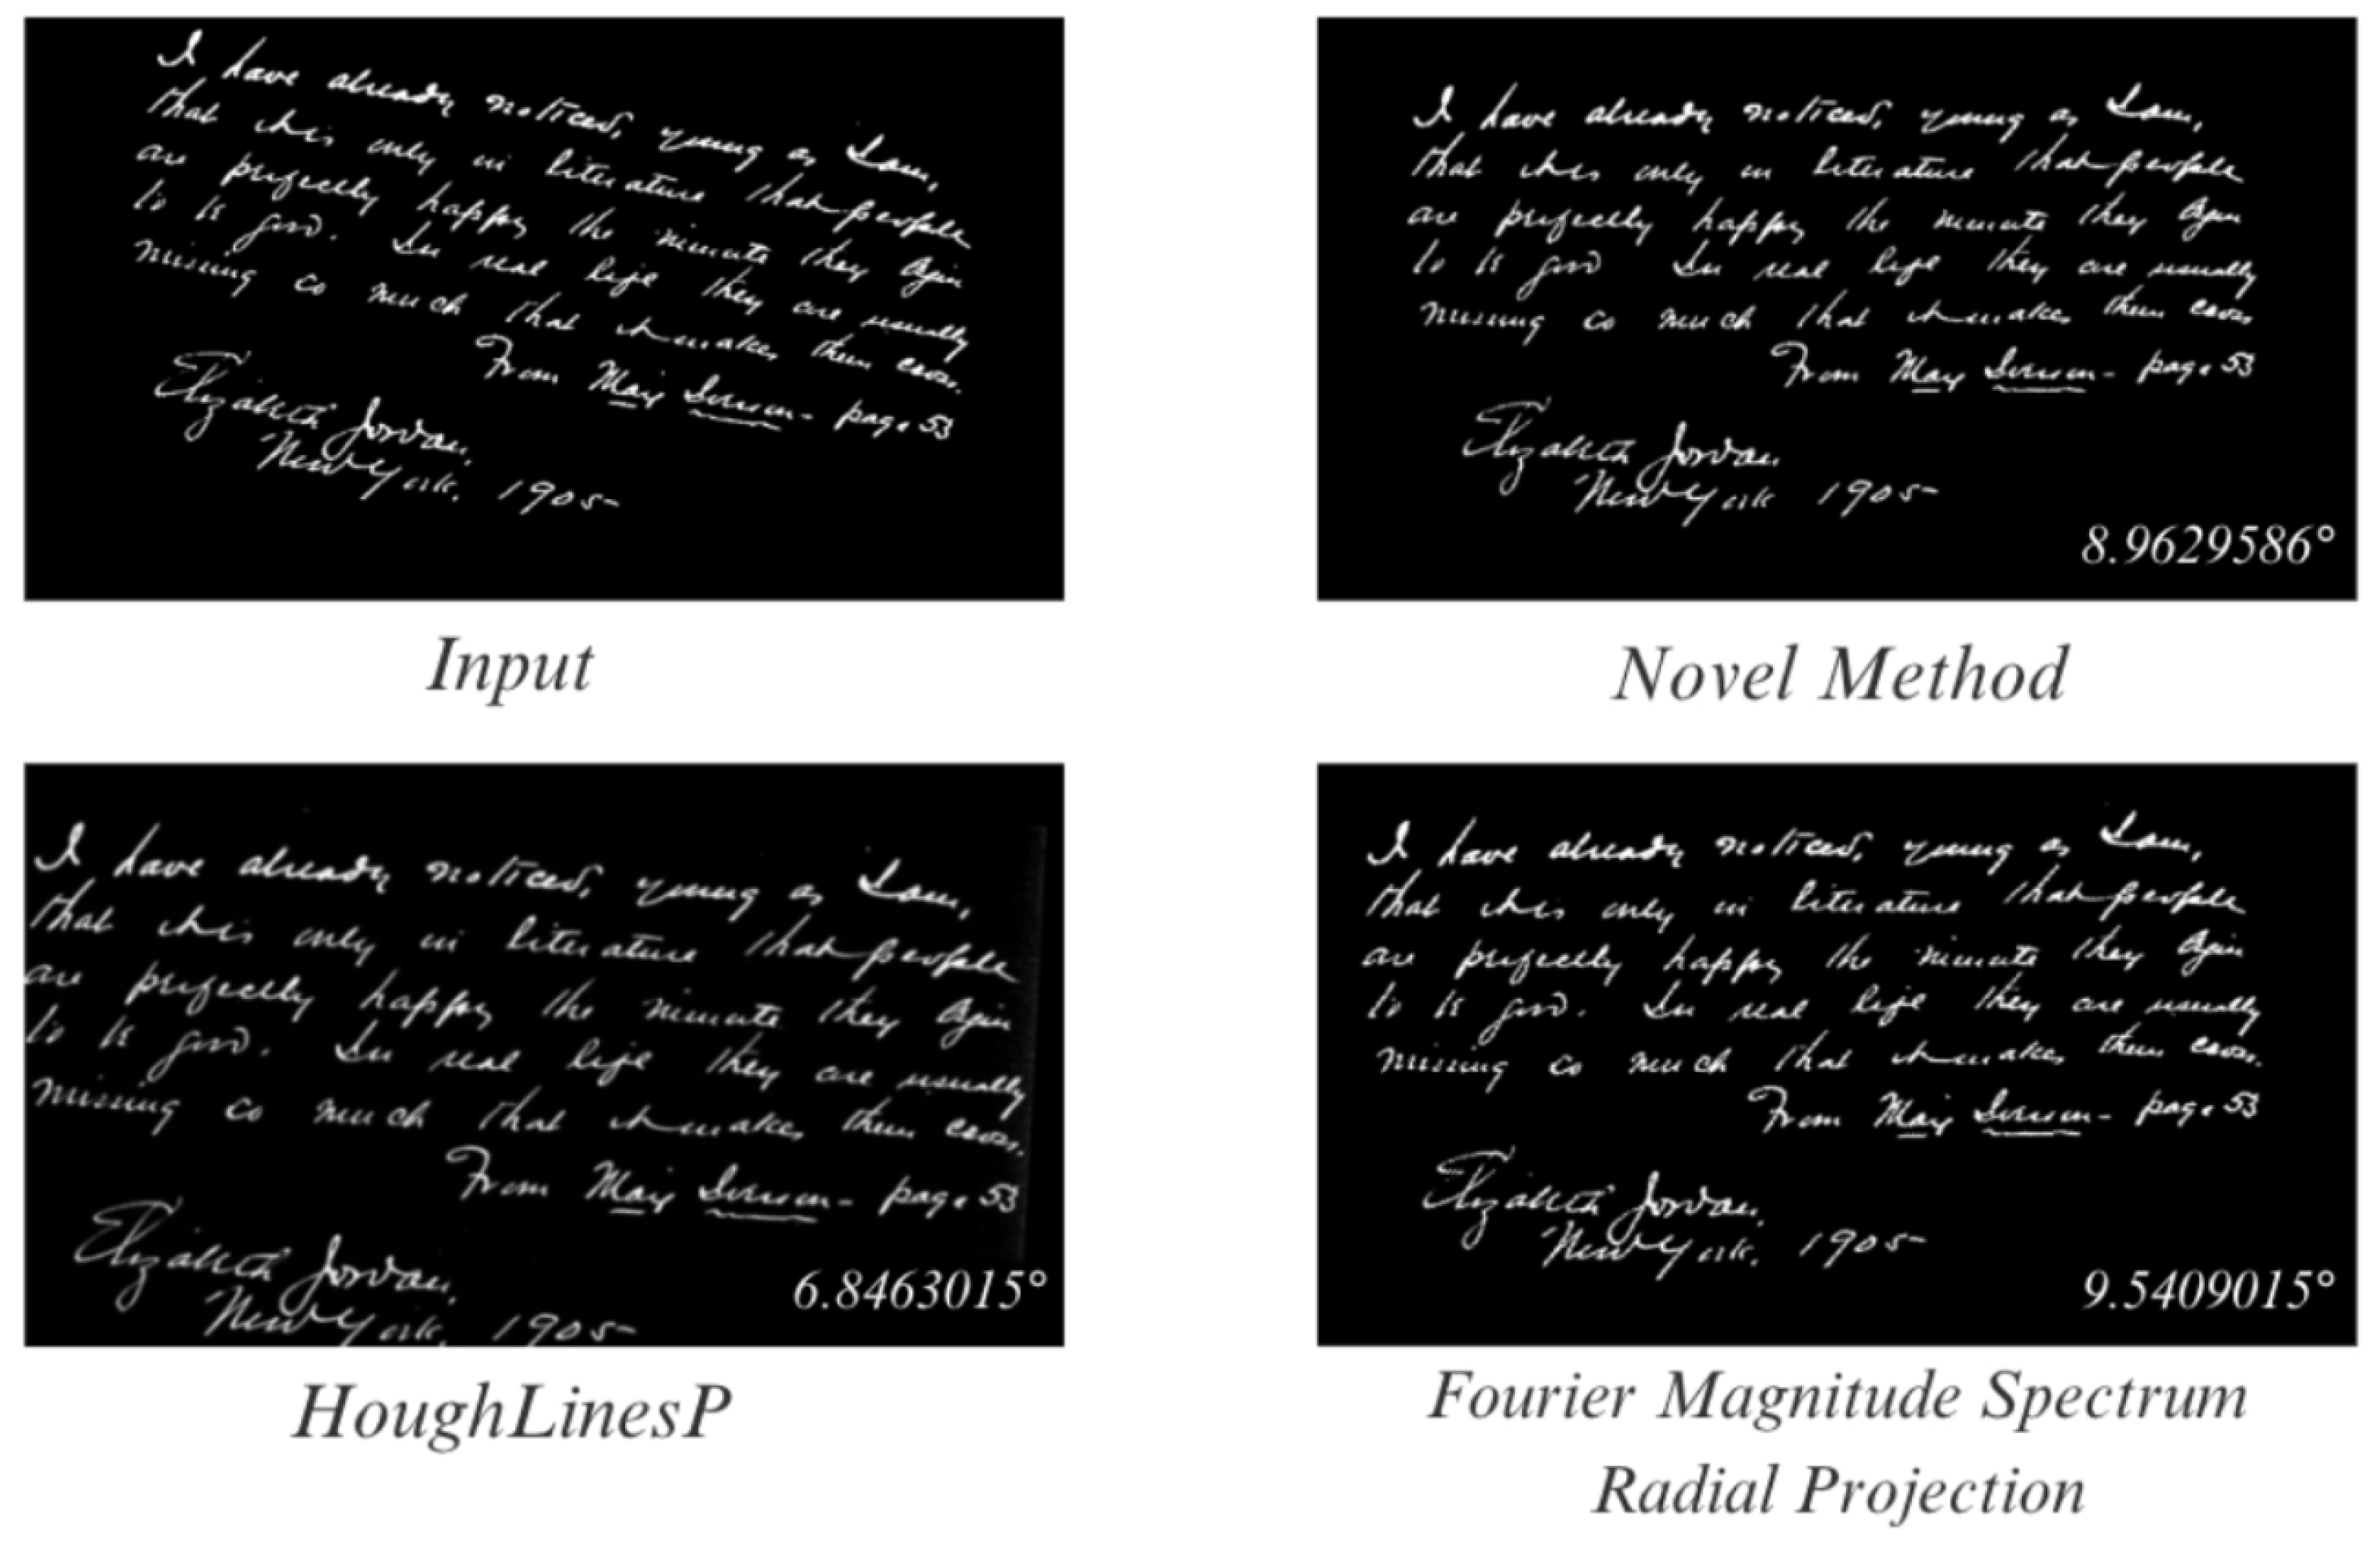 I have already noticed, young as I am,
that it is only in literature that people
are perfectly happy the minute they begin
to be good. In real life they are usually
missing so much that it makes them cross.
From May Iverson - page 53
Elizabeth Jordan,
New York, 1905-
Input
I have already noticed, young as I am,
that it is only in literature that people
are perfectly happy the minute they begin
to be good In real life they are usually
missing so much that it makes them cross
From May Iverson - page 53
Elizabeth Jordan
New York 1905-
8.9629586°
Novel Method
I have already noticed, young as I am,
that it is only in literature that people
are perfectly happy the minute they begin
to be good. In real life they are usually
missing so much that it makes them cross.
From May Iverson - page 53
Elizabeth Jordan,
New York, 1905-
6.8463015°
HoughLinesP
I have already noticed, young as I am,
that it is only in literature that people
are perfectly happy the minute they begin
to be good. In real life they are usually
missing so much that it makes them cross.
From May Iverson - page 53
Elizabeth Jordan,
New York, 1905-
9.5409015°
Fourier Magnitude Spectrum
Radial Projection